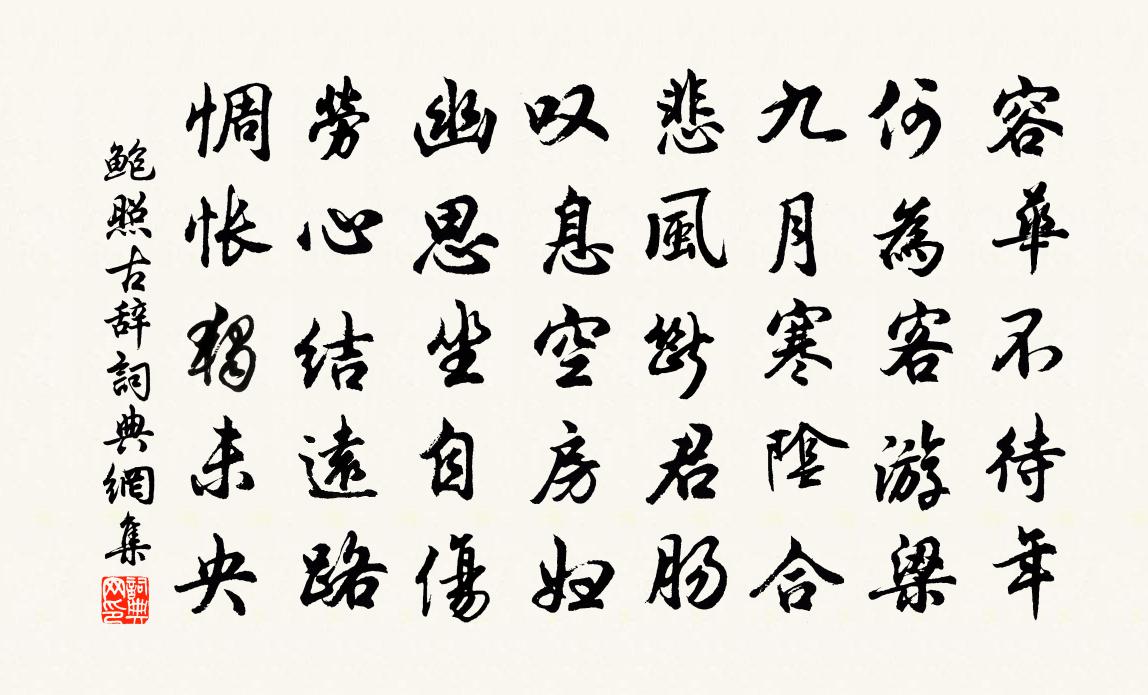 容華不待年
何為客游梁
九月寒陰合
悲風斷君肠
叹息空房婦
幽思坐自傷
勞心結遠路
惆悵獨未央
鮑照古辞詞典網集
詞典网印